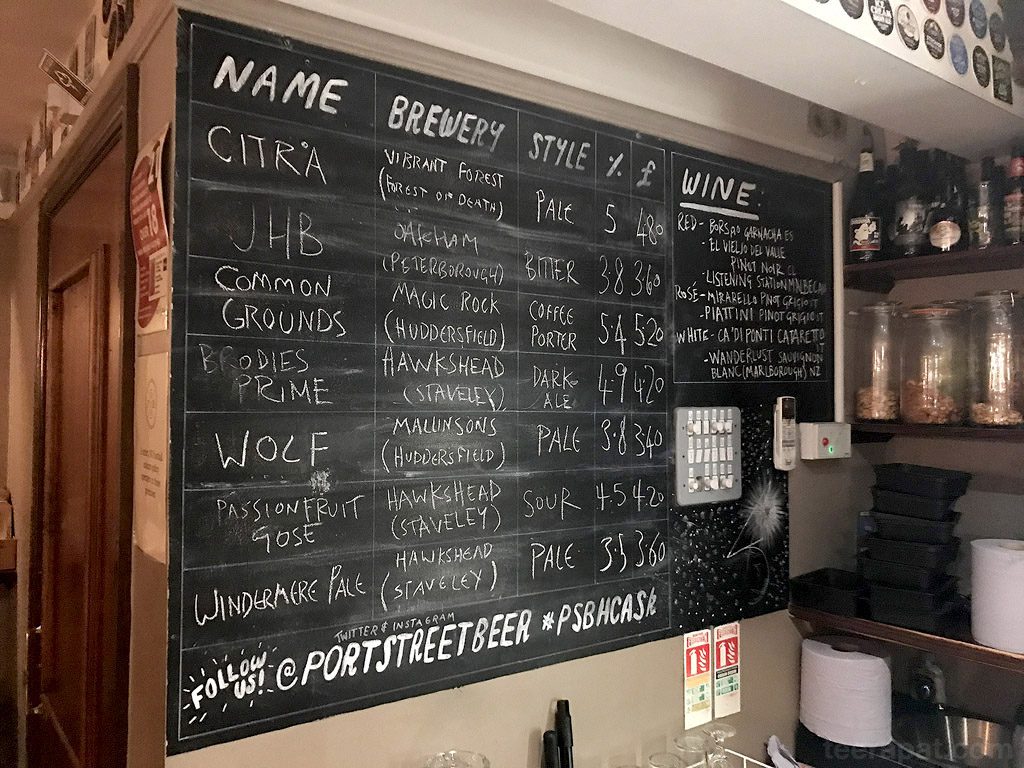 NAME BREWERY STYLE % £
CITRA VIBRANT FOREST (FOREST OF DEATH) PALE 5 480
JHB OAKHAM (PETERBOROUGH) BITTER 3.8 360
COMMON GROUNDS MAGIC ROCK (HUDDERSFIELD) COFFEE PORTER 5.4 520
BRODIES PRIME HAWKSHEAD (STAVELEY) DARK ALE 4.9 420
WOLF MALLINSONS (HUDDERSFIELD) PALE 3.8 340
PASSIONFRUIT GOSE HAWKSHEAD (STAVELEY) SOUR 4.5 420
WINDERMERE PALE HAWKSHEAD (STAVELEY) PALE 3.5 360
TWITTER & INSTAGRAM
FOLLOW US! @PORTSTREETBEER #PSBHCASK
WINE:
RED - BORSAO GARNACHA ES
- EL VIEJO DEL VALLE
PINOT NOIR CL
- LISTENING STATION MALBEC AU
ROSÉ - MIRARELLO PINOT GRIGIO IT
- PIATTINI PINOT GRIGIO IT
WHITE - CA'DI PONTI CATARETTO
IT
- WANDERLUST SAUVIGNON
BLANC (MARLBOROUGH) NZ
teerapat.com